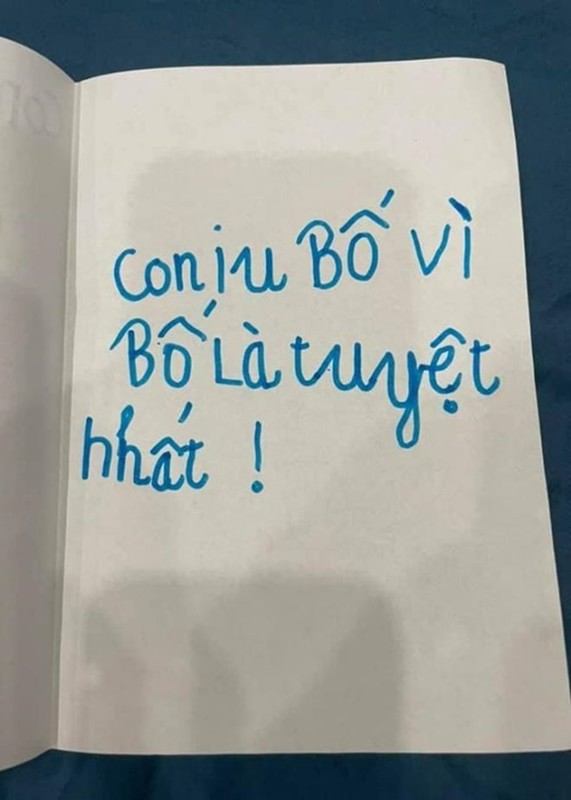 Con iu Bố vì
Bố Là tuyệt
nhất !